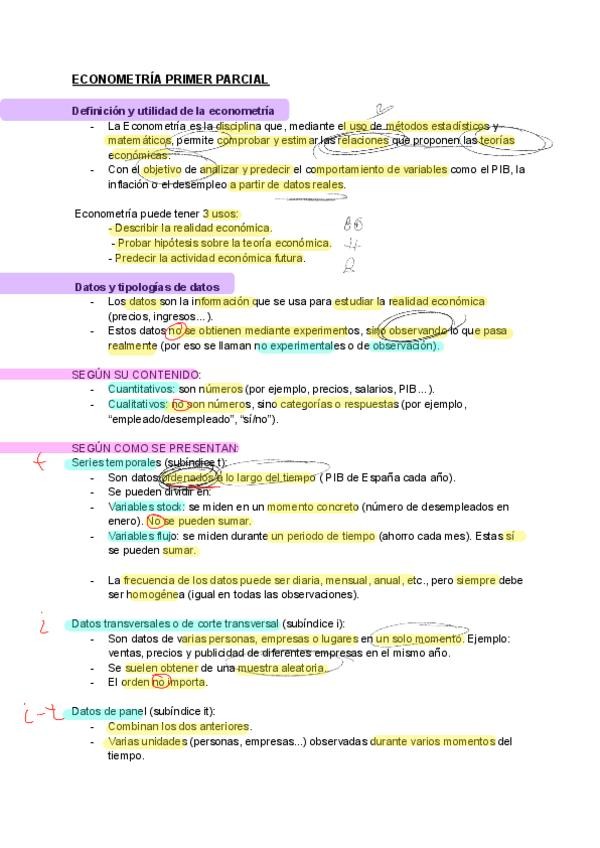 ECONOMETRÍA PRIMER PARCIAL
Definición y utilidad de la econometría
- La Econometría es la disciplina que, mediante el uso de métodos estadísticos y
matemáticos, permite comprobar y estimar las relaciones que proponen las teorías
económicas.
- Con el objetivo de analizar y predecir el comportamiento de variables como el PIB, la
inflación o el desempleo a partir de datos reales.
Econometría puede tener 3 usos:
- Describir la realidad económica.
- Probar hipótesis sobre la teoría económica.
- Predecir la actividad económica futura.
Datos y tipologías de datos
- Los datos son la información que se usa para estudiar la realidad económica
(precios, ingresos...).
- Estos datos no se obtienen mediante experimentos, sino observando lo que pasa
realmente (por eso se llaman no experimentales o de observación).
SEGÚN SU CONTENIDO:
- Cuantitativos: son números (por ejemplo, precios, salarios, PIB...).
- Cualitativos: no son números, sino categorías o respuestas (por ejemplo,
“empleado/desempleado”, “sí/no”).
SEGÚN COMO SE PRESENTAN:
t Series temporales (subíndice t):
- Son datos ordenados a lo largo del tiempo ( PIB de España cada año).
- Se pueden dividir en:
- Variables stock: se miden en un momento concreto (número de desempleados en
enero). No se pueden sumar.
- Variables flujo: se miden durante un periodo de tiempo (ahorro cada mes). Estas sí
se pueden sumar.
- La frecuencia de los datos puede ser diaria, mensual, anual, etc., pero siempre debe
ser homogénea (igual en todas las observaciones).
i Datos transversales o de corte transversal (subíndice i):
- Son datos de varias personas, empresas o lugares en un solo momento. Ejemplo:
ventas, precios y publicidad de diferentes empresas en el mismo año.
- Se suelen obtener de una muestra aleatoria.
- El orden no importa.
i-t Datos de panel (subíndice it):
- Combinan los dos anteriores.
- Varias unidades (personas, empresas...) observadas durante varios momentos del
tiempo.